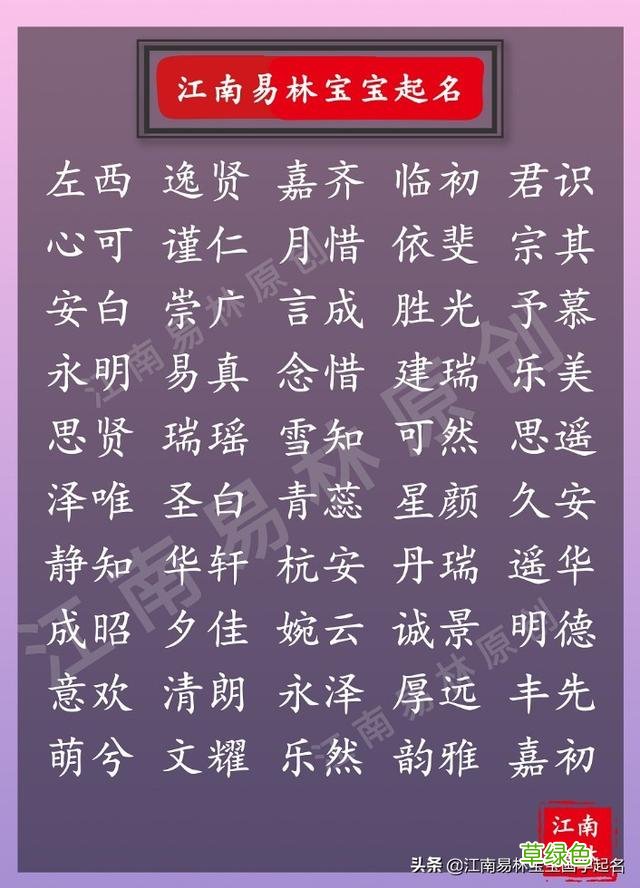 江南易林宝宝起名
左西 逸贤 嘉齐 临初 君识
心可 谨仁 月惜 依斐 宗其
安白 崇广 言成 胜光 予慕
永明 易真 念惜 建瑞 乐美
思贤 瑞瑶 雪知 可然 思遥
泽唯 圣白 青蕊 星颜 久安
静知 华轩 杭安 丹瑞 遥华
成昭 夕佳 婉云 诚景 明德
意欢 清朗 永泽 厚远 丰先
萌兮 文耀 乐然 韵雅 嘉初
江南易林原创
江南易林原创
江南易林原创
江南
草绿色
头条 @江南易林宝宝国学起名